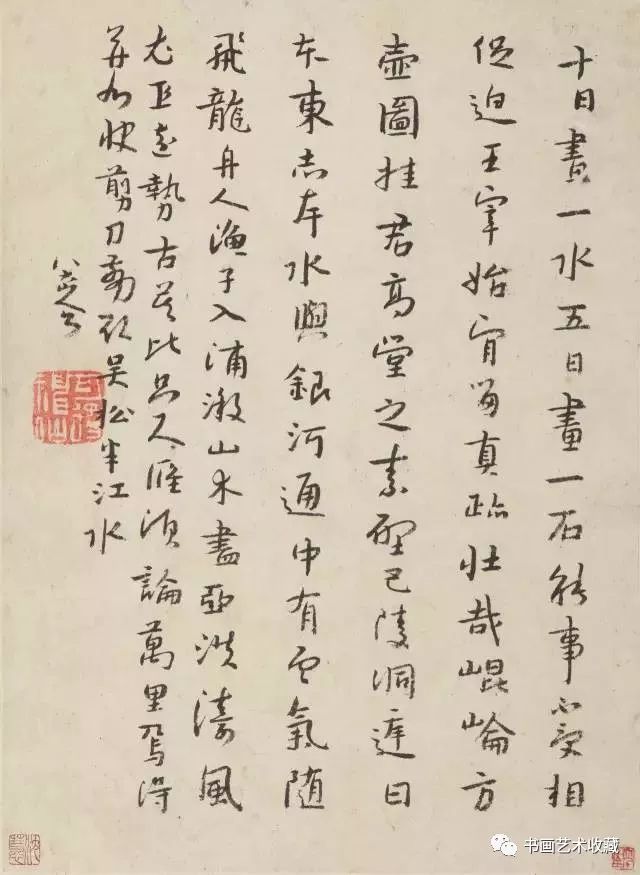 十日畫一水五日畫一石能事不受相
促迫王宰始肯留真跡壯哉崐崘方
壺圖挂君高堂之素壁巴陵洞庭日
本東赤岸水與銀河通中有雲氣隨
飛龍舟人漁子入浦溆山木盡亞洪濤風
尤工遠勢古莫比咫尺應須論萬里焉得
并州快剪刀剪取吳松半江水
八大山人
书画艺术收藏